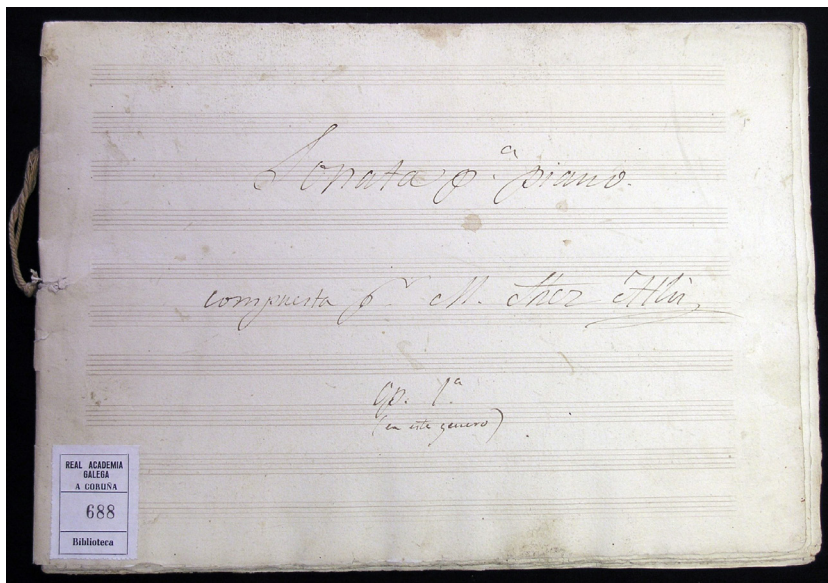 Sonata p.ª piano.
compuesta p.r M. Shez Allú
Op. 1.ª
(en este genero)
REAL ACADEMIA
GALEGA
A CORUÑA
688
Biblioteca